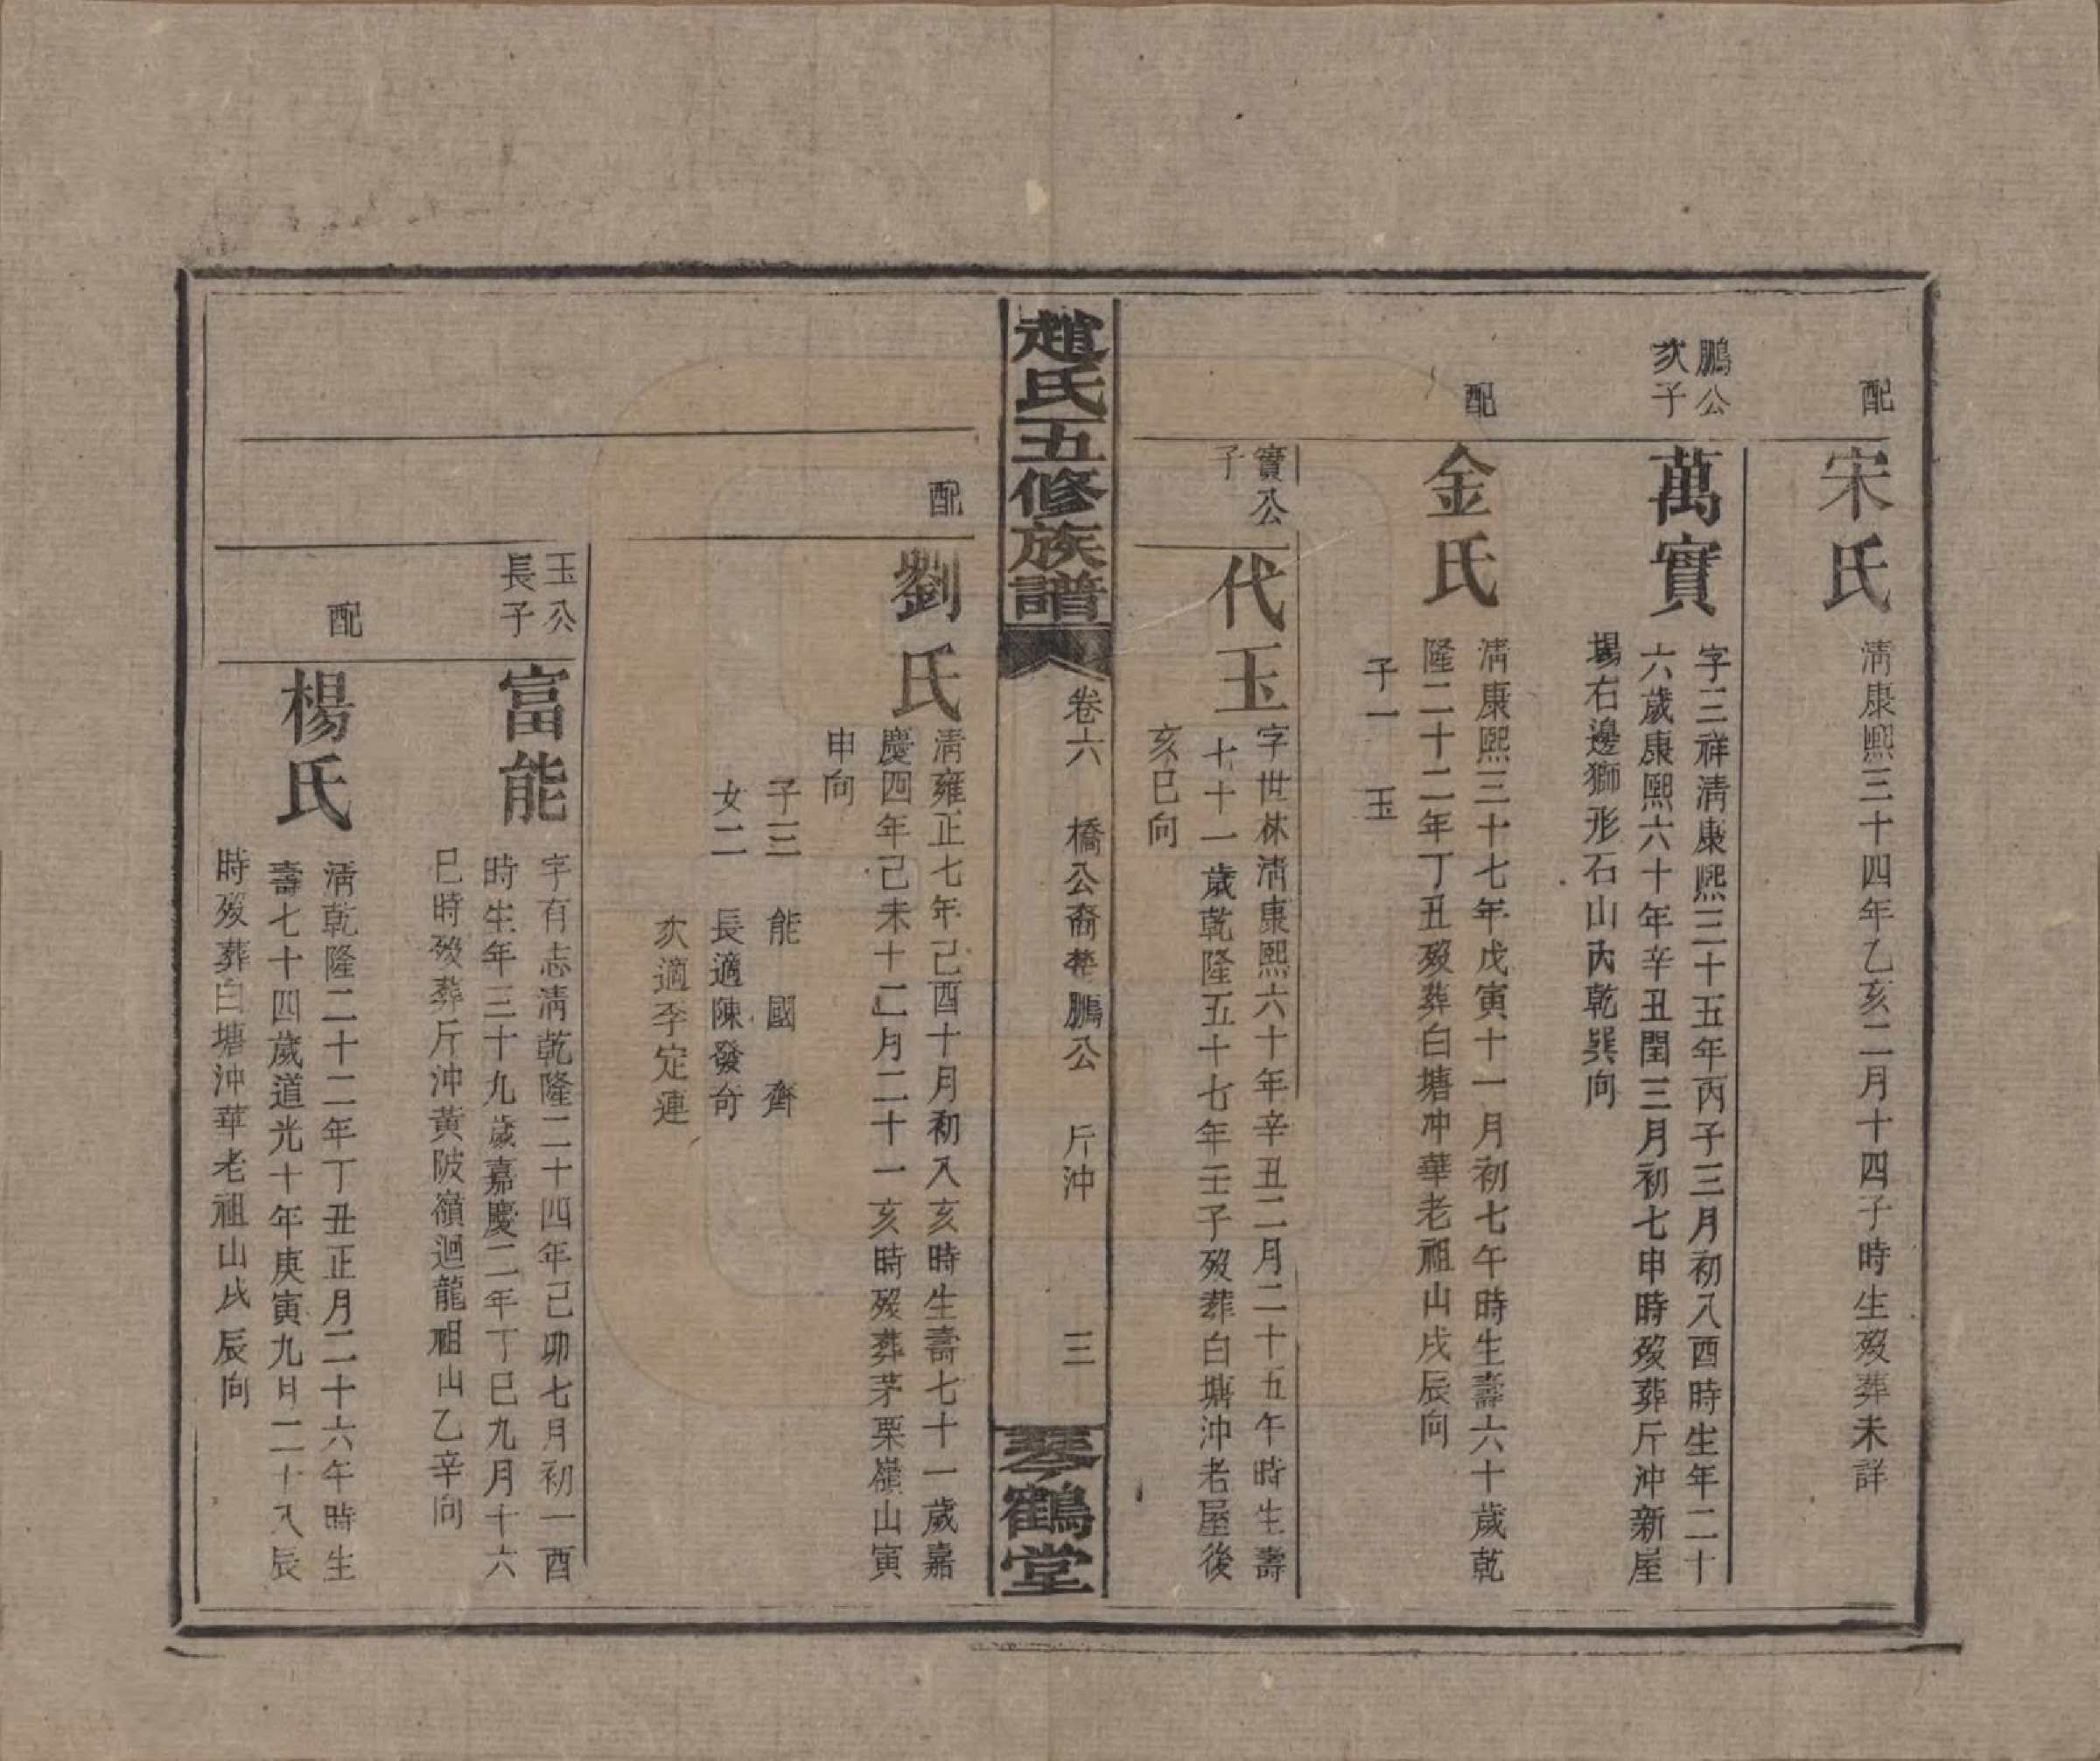 配
宋氏
淸康熙三十四年乙亥二月十四子時生歿葬未詳
鵬公
次子
萬實
字三祥淸康熙三十五年丙子三月初八酉時生年二十
六歲康熙六十年辛丑閏三月初七申時歿葬斤沖新屋
場右邊獅形石山內乾巽向
配
金氏
淸康熙三十七年戊寅十一月初七午時生壽六十歲乾
隆二十二年丁丑歿葬白塘沖華老祖山戌辰向
子一 玉
實公
子
代玉
字世林淸康熙六十年辛丑二月二十五午時生壽
七十一歲乾隆五十七年壬子歿葬白塘沖老屋後
亥巳向
趙氏五修族譜
卷六 橋公裔 鵬公 斤沖 三
琴鶴堂
配
劉氏
淸雍正七年己酉十月初八亥時生壽七十一歲嘉
慶四年己未十二月二十一亥時歿葬茅栗嶺山寅
申向
子三 能 國 齊
女二 長適陳發奇
次適李定連
玉公
長子
富能
字有志淸乾隆二十四年己卯七月初一酉
時生年三十九歲嘉慶二年丁巳九月十六
巳時歿葬斤沖黃陂嶺迴龍祖山乙辛向
配
楊氏
淸乾隆二十二年丁丑正月二十六午時生
壽七十四歲道光十年庚寅九月二十八辰
時歿葬白塘沖華老祖山戌辰向